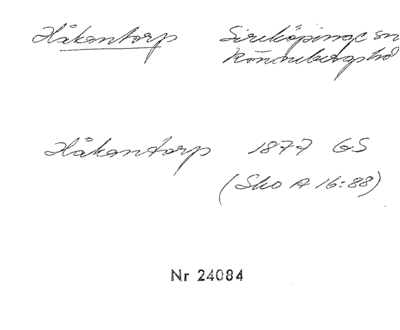 Håkantorp Sireköpinge sn
Rönnebergs hd
Håkantorp 1877 GS
(Sko A 16:88)
Nr 24084